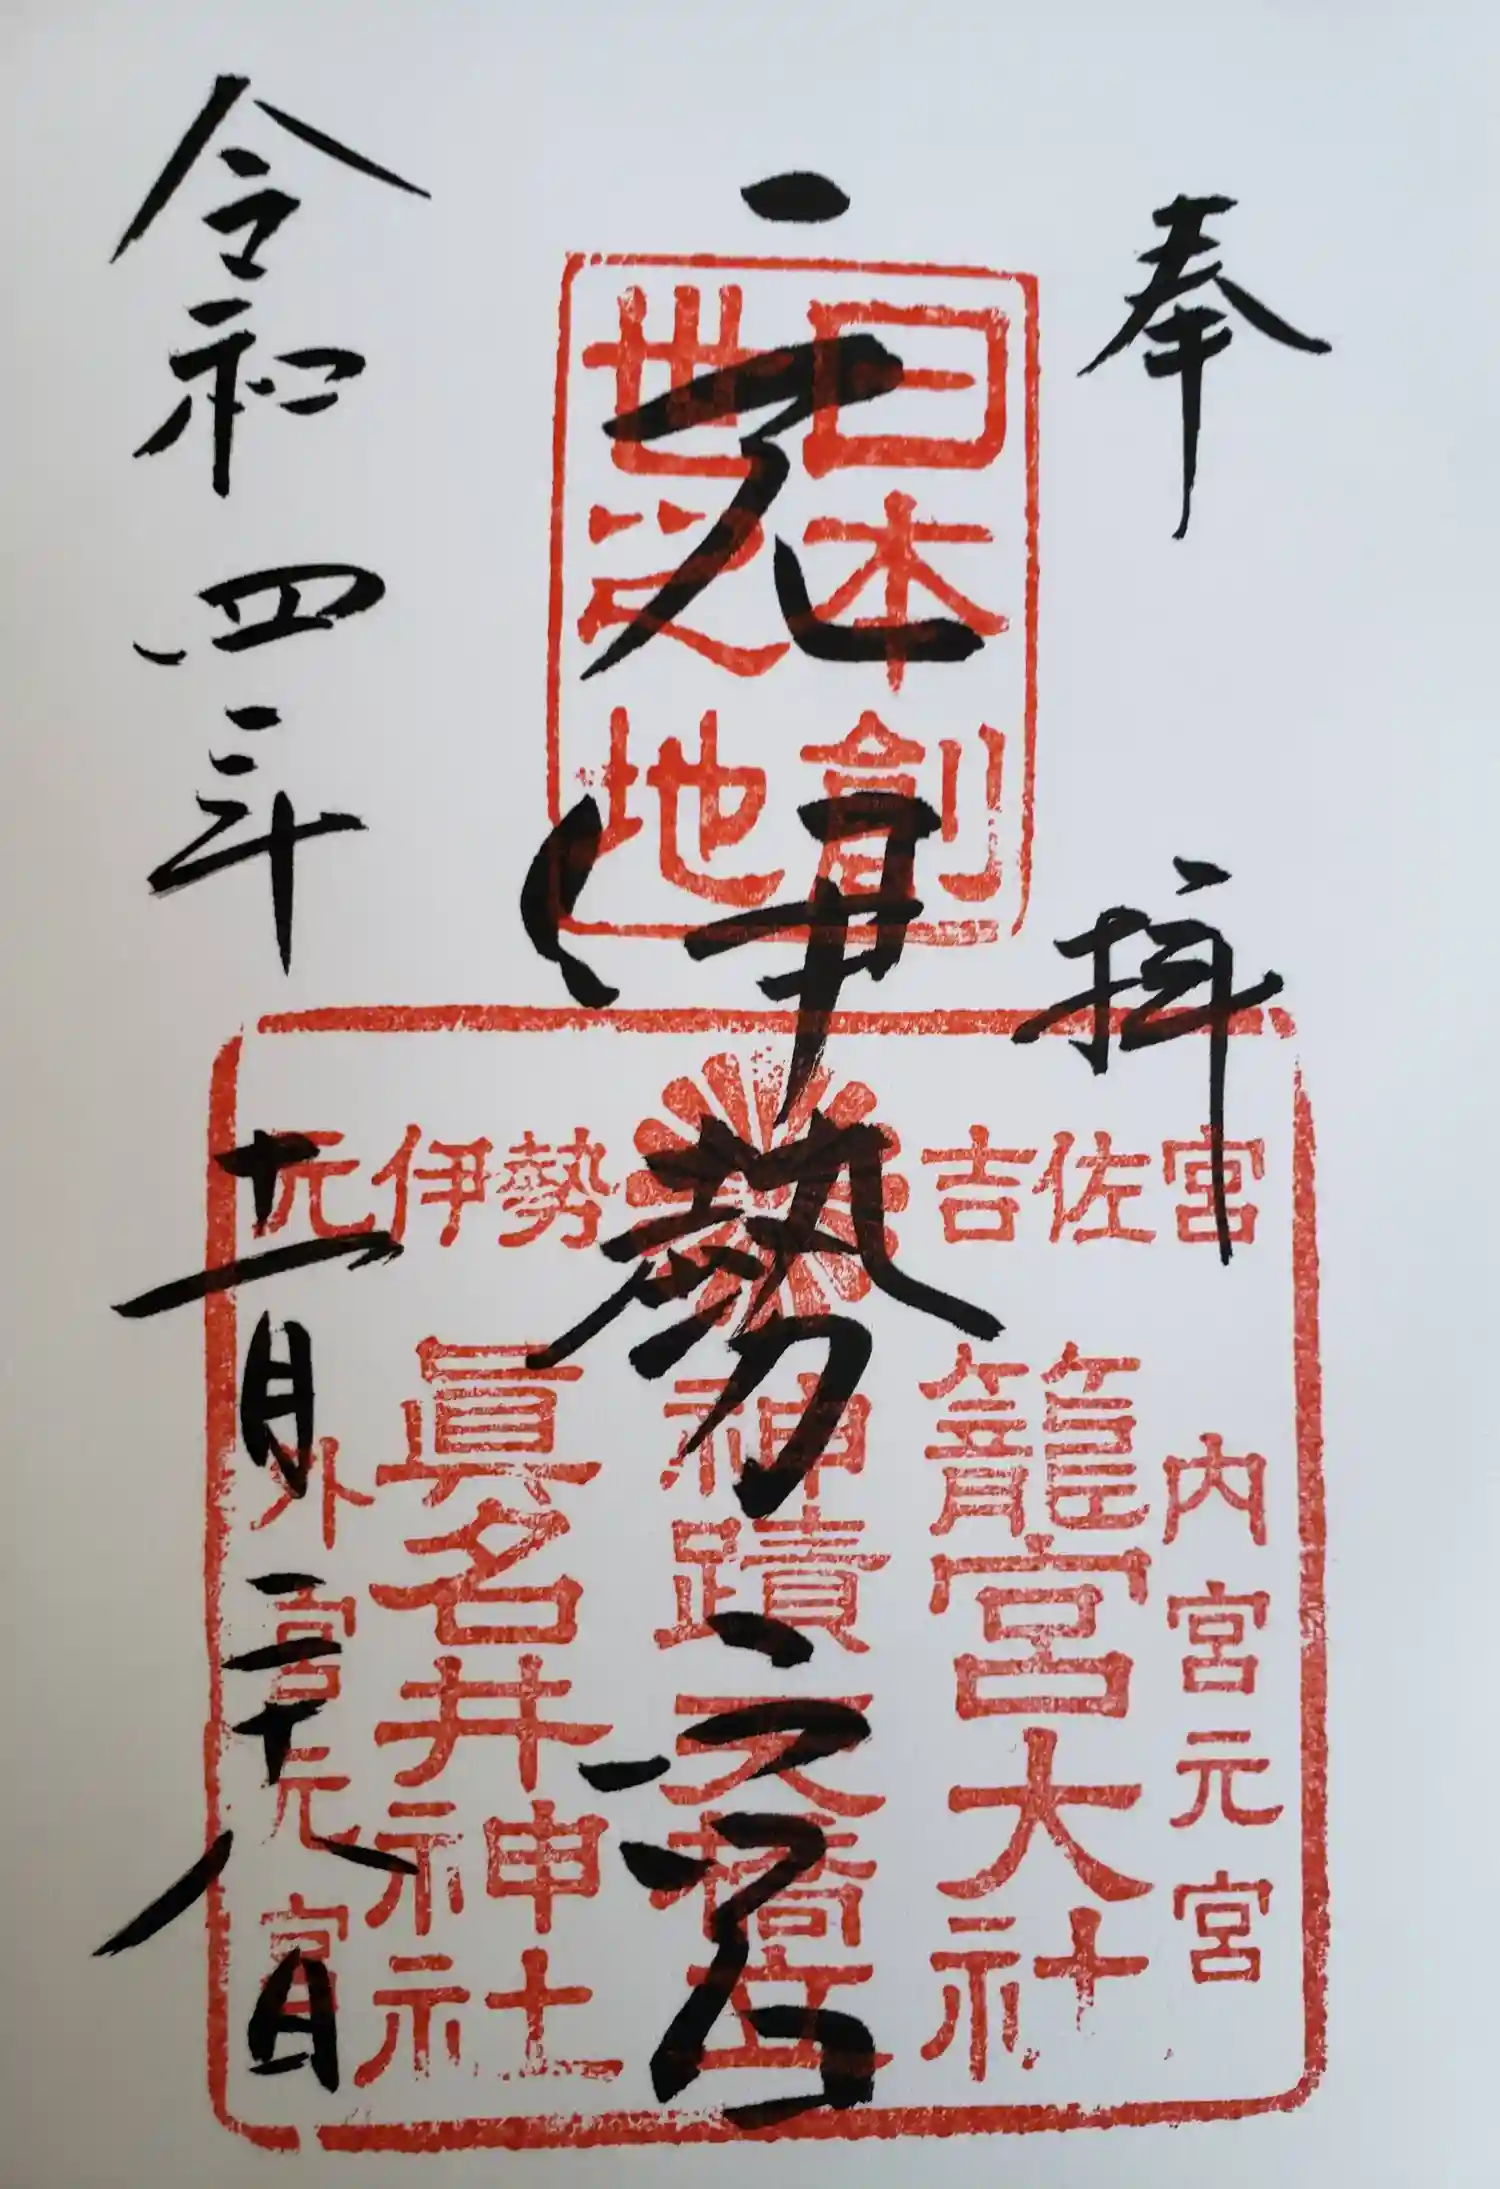 奉拝
元伊勢之宮
令和四年
十一月二十八日
日本創
世之地
吉佐宮
元伊勢
内宮元宮
籠宮大社
神蹟天橋立
眞名井神社
外宮元宮